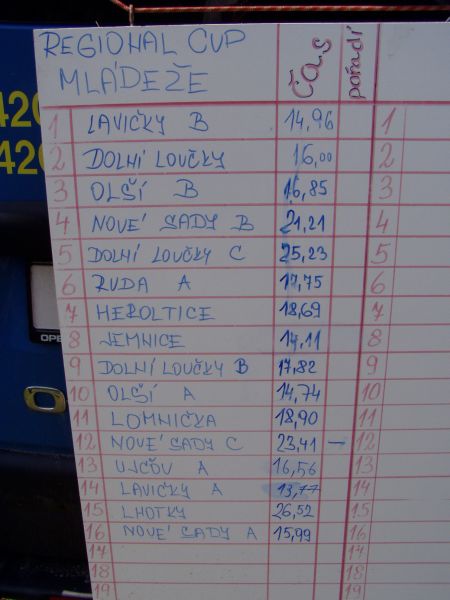 REGIONAL CUP
MLÁDEŽE
ČAS
pořadí
1 LAVIČKY B 14,96 1
2 DOLNÍ LOUČKY 16,00 2
3 OLŠÍ B 16,85 3
4 NOVÉ SADY B 21,21 4
5 DOLNÍ LOUČKY C 25,23 5
6 RUDA A 17,75 6
7 HEROLTICE 18,69 7
8 JEMNICE 14,11 8
9 DOLNÍ LOUČKY B 17,82 9
10 OLŠÍ A 14,74 10
11 LOMNIČKA 18,90 11
12 NOVÉ SADY C 23,41 – 12
13 UJČOV A 16,56 13
14 LAVIČKY A 13,77 14
15 LHOTKY 26,52 15
16 NOVÉ SADY A 15,99 16
17 17
18 18
19 19
420
420
OPE